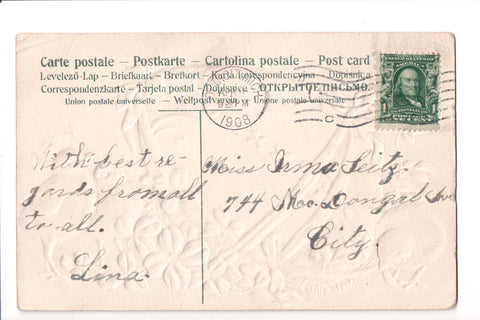 Carte postale – Postkarte – Cartolina postale – Post card
Levelező-Lap – Briefkaart – Brefkort – Karta korespondencyjna – Dopisnica
Correspondenzkarte – Tarjeta postal – Dopisnice – ОТКРЫТОЕ ПИСЬМО.
Union postale universelle – Weltpostverein – Unione postale universale
1908
C
1 1
With best re-
gards from all
to all.
Lina.
Miss Irma Seitz.
744 Mc. Dougal Ave
City.